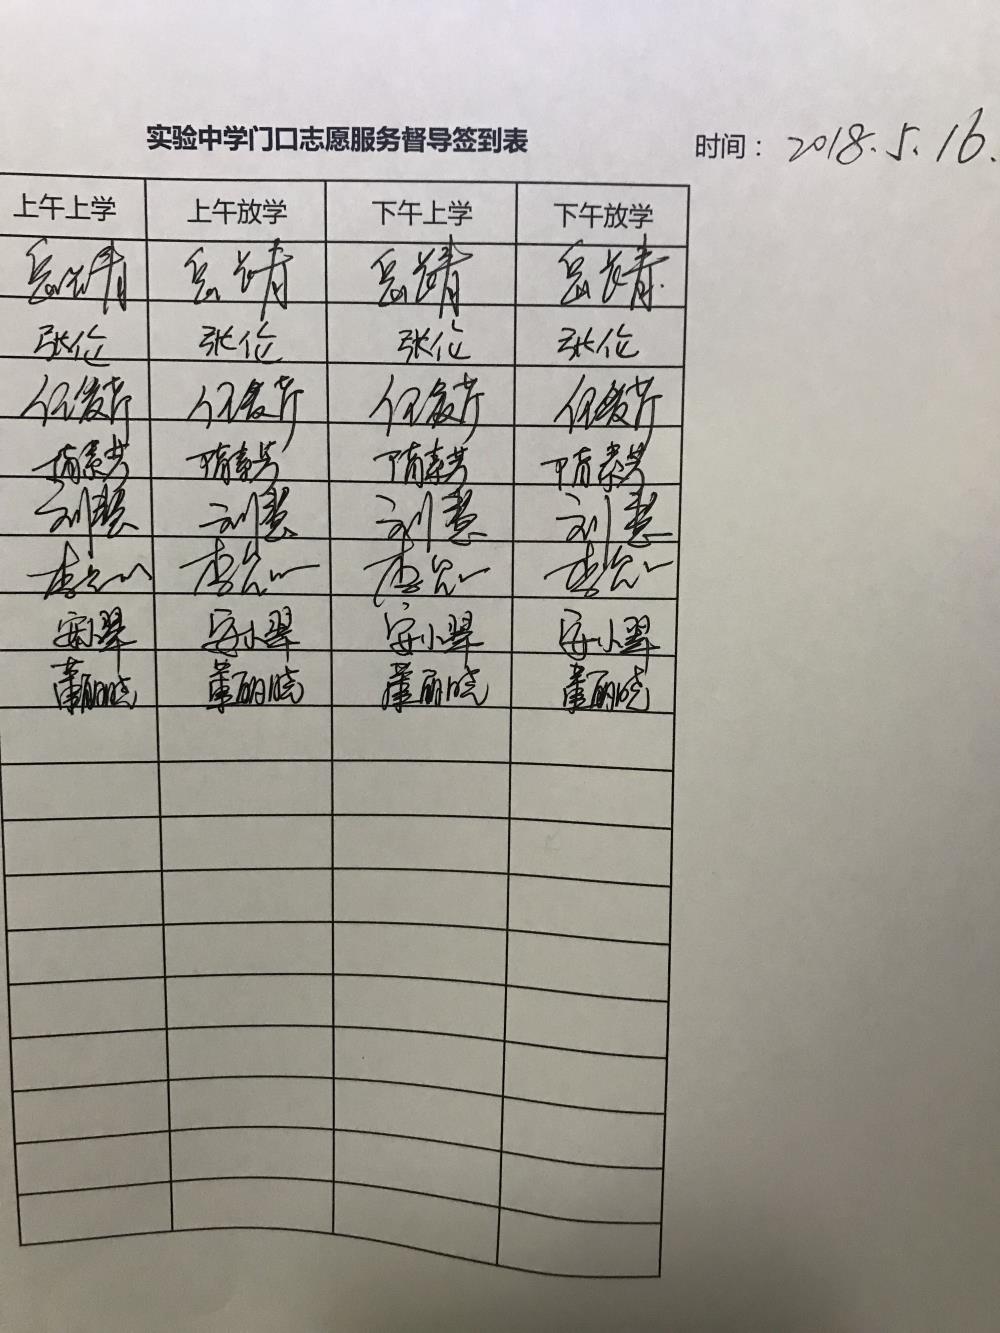 实验中学门口志愿服务督导签到表
时间： 2018.5.16.
上午上学 上午放学 下午上学 下午放学
张伦 张伦 张伦 张伦
何爱芹 何爱芹 何爱芹 何爱芹
隋素芳 隋素芳 隋素芳 隋素芳
刘慧 刘慧 刘慧 刘慧
安小翠 安小翠 安小翠 安小翠
董丽晓 董丽晓 董丽晓 董丽晓